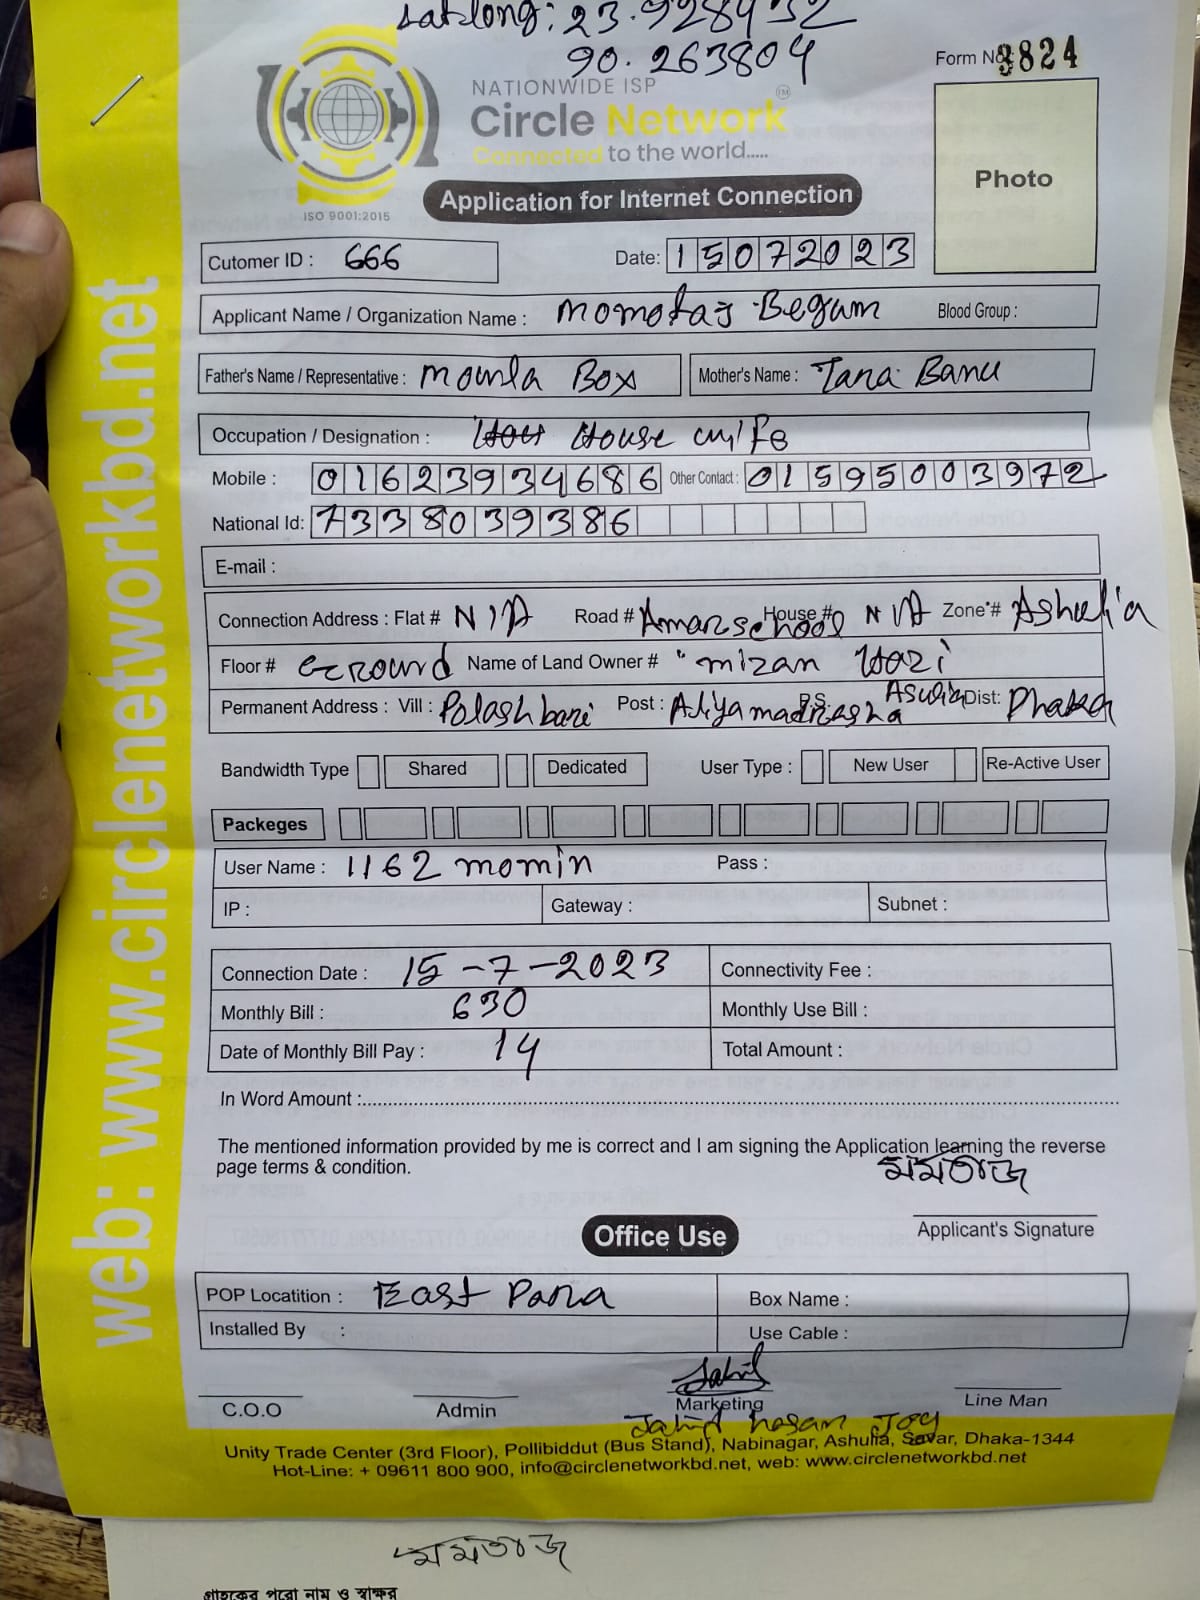 Lat Long: 23.9284932
90.263804
Form No 3824
NATIONWIDE ISP
Circle Network TM
Connected to the world.....
ISO 9001:2015
Application for Internet Connection
Photo
Cutomer ID : 666 Date: 15072023
Applicant Name / Organization Name : Momotaj Begum Blood Group :
Father's Name / Representative : Mowla Box Mother's Name : Tara Banu
Occupation / Designation : House wife
Mobile : 01623934686 Other Contact : 01595003972
National Id: 7338039386
E-mail :
Connection Address : Flat # N/A Road # Aman school House # N/A Zone # Ashulia
Floor # Ground Name of Land Owner # Mizan Hazi
Permanent Address : Vill : Polashbari Post : Aliya madrasha P.S. Asulia Dist: Dhaka
Bandwidth Type Shared Dedicated User Type : New User Re-Active User
Packeges
User Name : 1162 momin Pass :
IP : Gateway : Subnet :
Connection Date : 15-7-2023 Connectivity Fee :
Monthly Bill : 630 Monthly Use Bill :
Date of Monthly Bill Pay : 14 Total Amount :
In Word Amount :
The mentioned information provided by me is correct and I am signing the Application learning the reverse
page terms & condition.
মমতাজ
Applicant's Signature
Office Use
POP Locatition : East Para Box Name :
Installed By : Use Cable :
Jahid
C.O.O Admin Marketing Line Man
Jahid hasan Joy
Unity Trade Center (3rd Floor), Pollibiddut (Bus Stand), Nabinagar, Ashulia, Savar, Dhaka-1344
Hot-Line: + 09611 800 900, info@circlenetworkbd.net, web: www.circlenetworkbd.net
web: www.circlenetworkbd.net
মমতাজ
গ্রাহকের পুরো নাম ও স্বাক্ষর